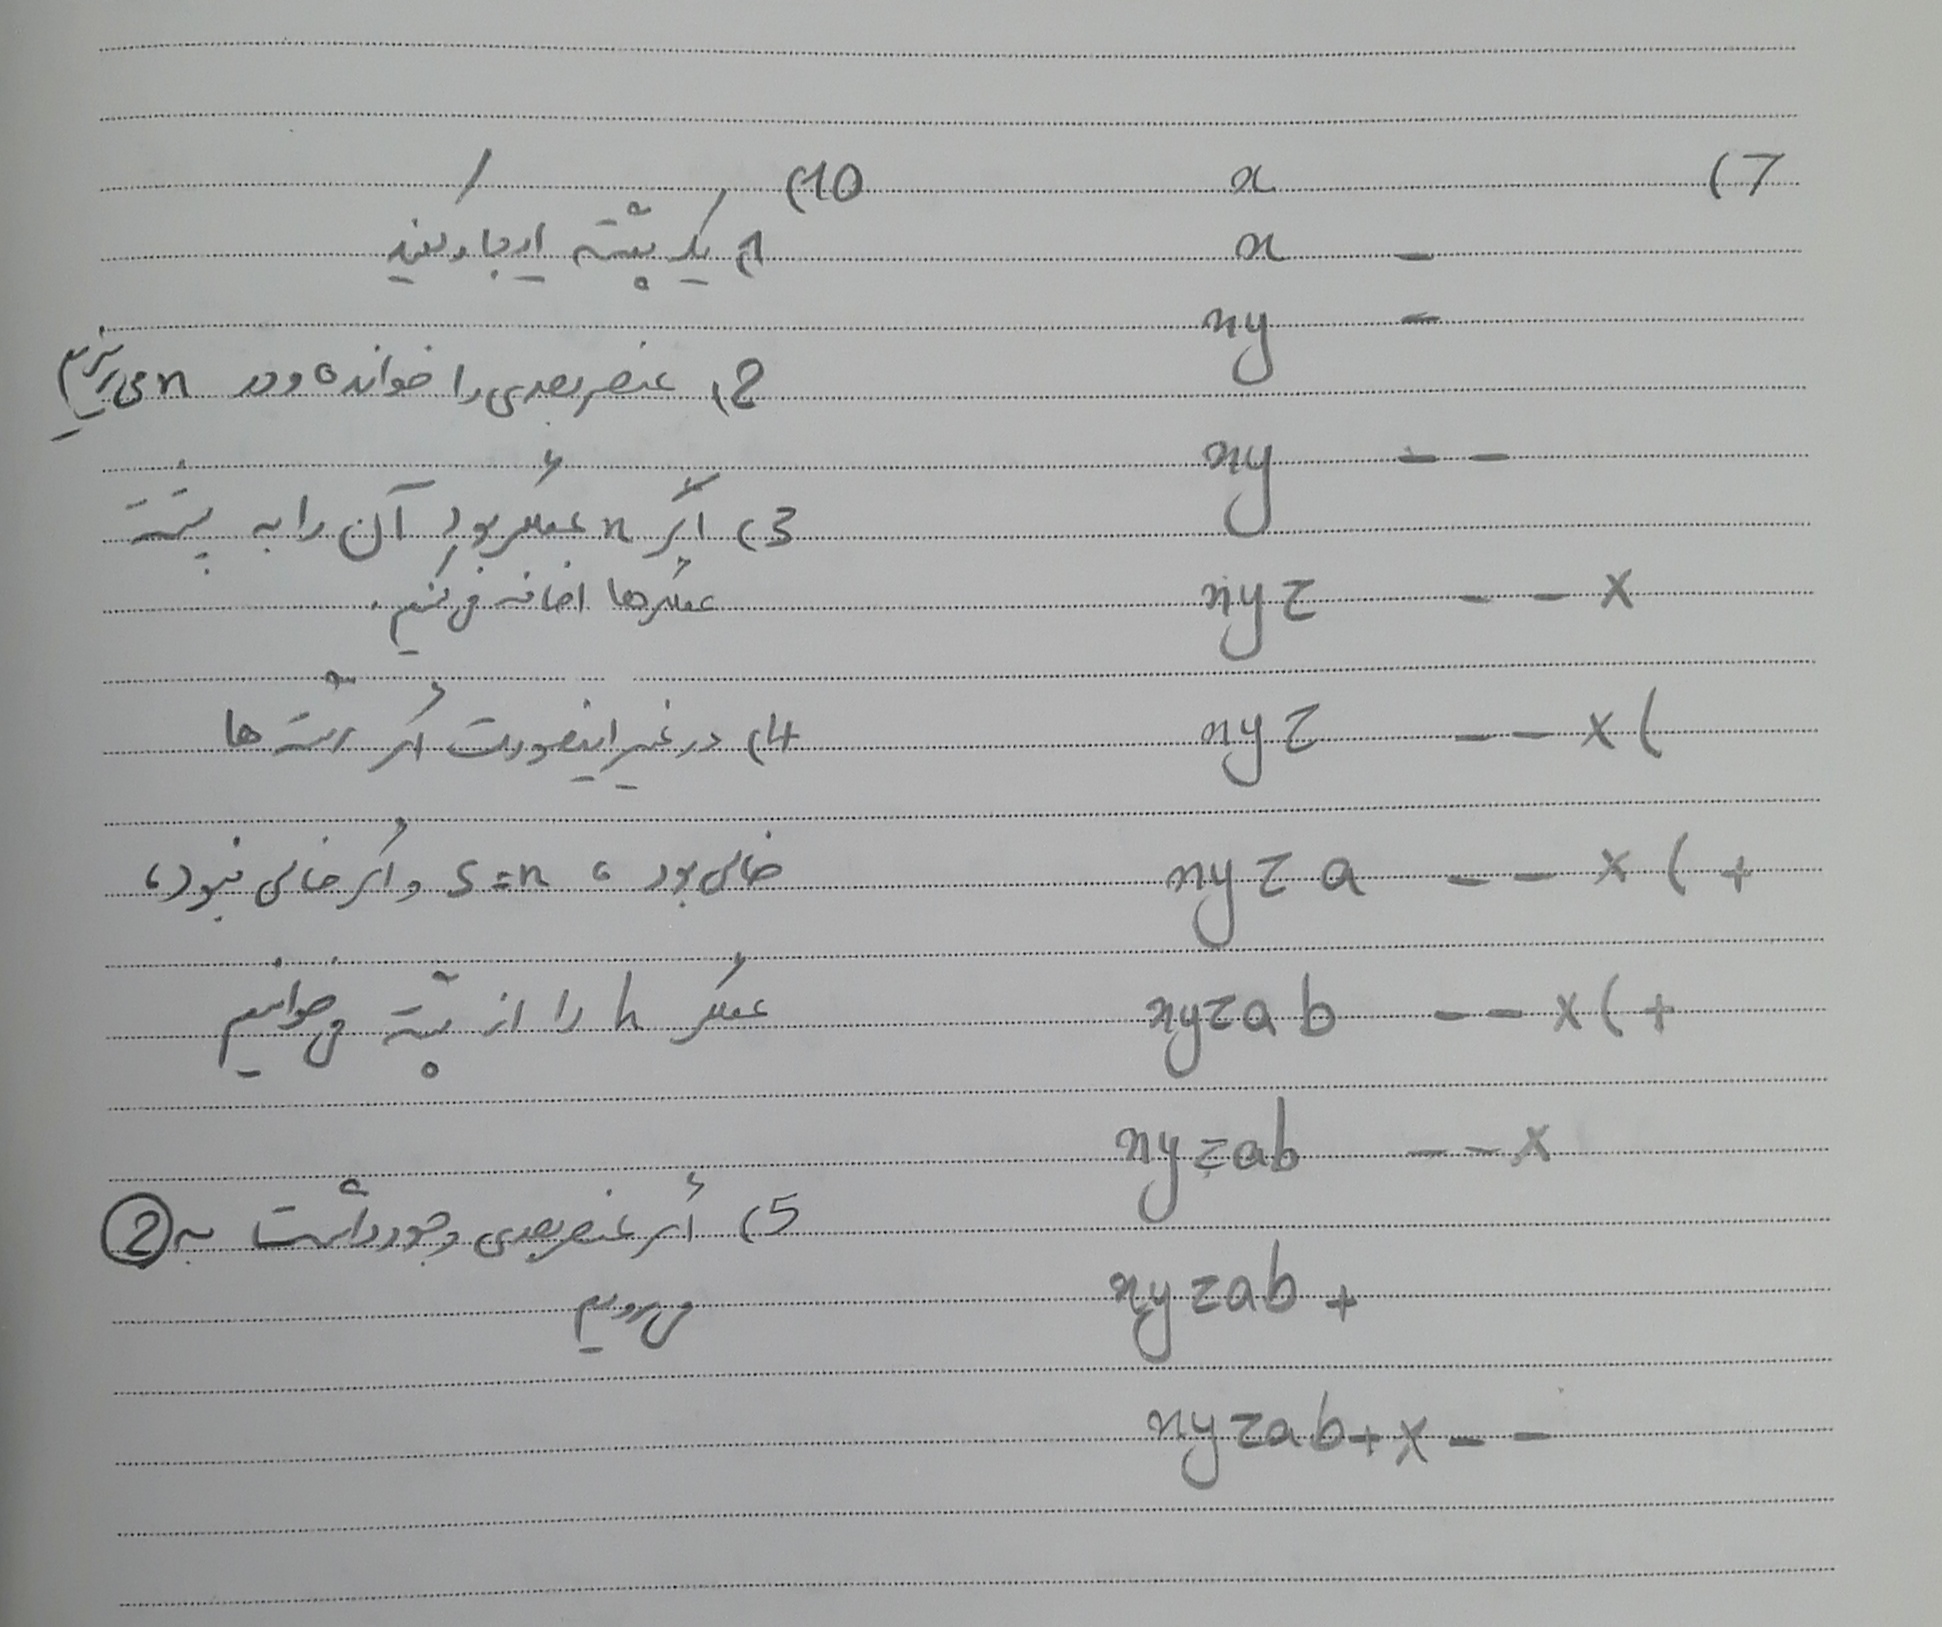 (7
x
x -
xy -
xy - -
xyz - - ×
xyz - - × (
xyz a - - × ( +
xyzab - - × ( +
xyzab - - ×
xyzab +
xyzab + × - -
(10
1) یک پشته ایجاد کنید
2) عنصر بعدی را خوانده و در n می‌ریزیم
3) اگر n عملگر بود آن را به پشته
عملگرها اضافه می‌کنیم.
4) در غیر اینصورت اگر رشته ها
خالی بود، s=n و اگر خالی نبود،
عملگر h را از پشته می‌خوانیم
5) اگر عنصر بعدی وجود داشت به 2
می‌رویم